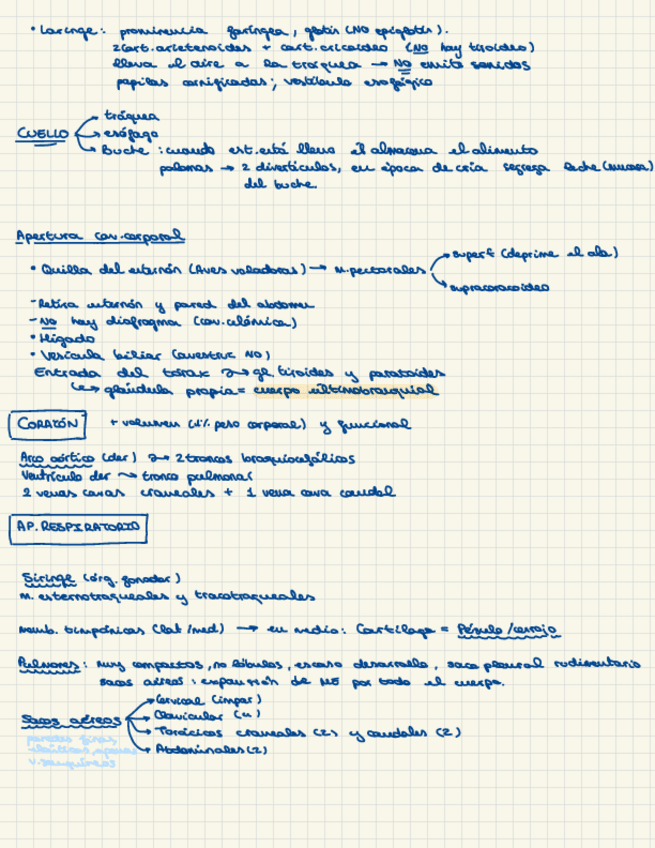 • Laringe: prominencia faríngea, glotis (NO epiglotis).
2 cart. aritenoides + cart. cricoideo (NO hay tiroideo)
lleva el aire a la tráquea → NO emite sonidos
papilas cornificadas; vestíbulo esofágico
CUELLO → tráquea
→ esófago
→ Buche: cuando est. está lleno él almacena el alimento
palomas → 2 divertículos, en época de cría segrega leche (mucosa)
del buche.
Apertura cav. corporal
• Quilla del esternón (Aves voladoras) → m. pectorales → superf (deprime el ala)
→ supracoracoideo
- Retira esternón y pared del abdomen
- NO hay diafragma (cav. celómica)
• Hígado
• Vesícula biliar (avestruz NO)
Entrada del tórax → gl. tiroides y paratoides
→ glándula propia = cuerpo ultimobranquial
CORAZÓN + volumen (1% peso corporal) y funcional
Arco aórtico (der) → 2 troncos braquiocefálicos
Ventrículo der → tronco pulmonar
2 venas cavas craneales + 1 vena cava caudal
AP. RESPIRATORIO
Siringe (órg. fonador)
m. esternotraqueales y tracotraqueales
memb. timpánicas (lat/med) → en medio: Cartílago = Pésulo/cerrojo
Pulmones: muy compactos, no lóbulos, escaso desarrollo, saco pleural rudimentario
sacos aéreos: expansión de por todo el cuerpo.
Sacos aéreos → Cervical (impar)
→ Clavicular
→ Torácicos craneales (2) y caudales (2)
→ Abdominales (2)
paredes finas,
elásticas,
v. sanguíneos